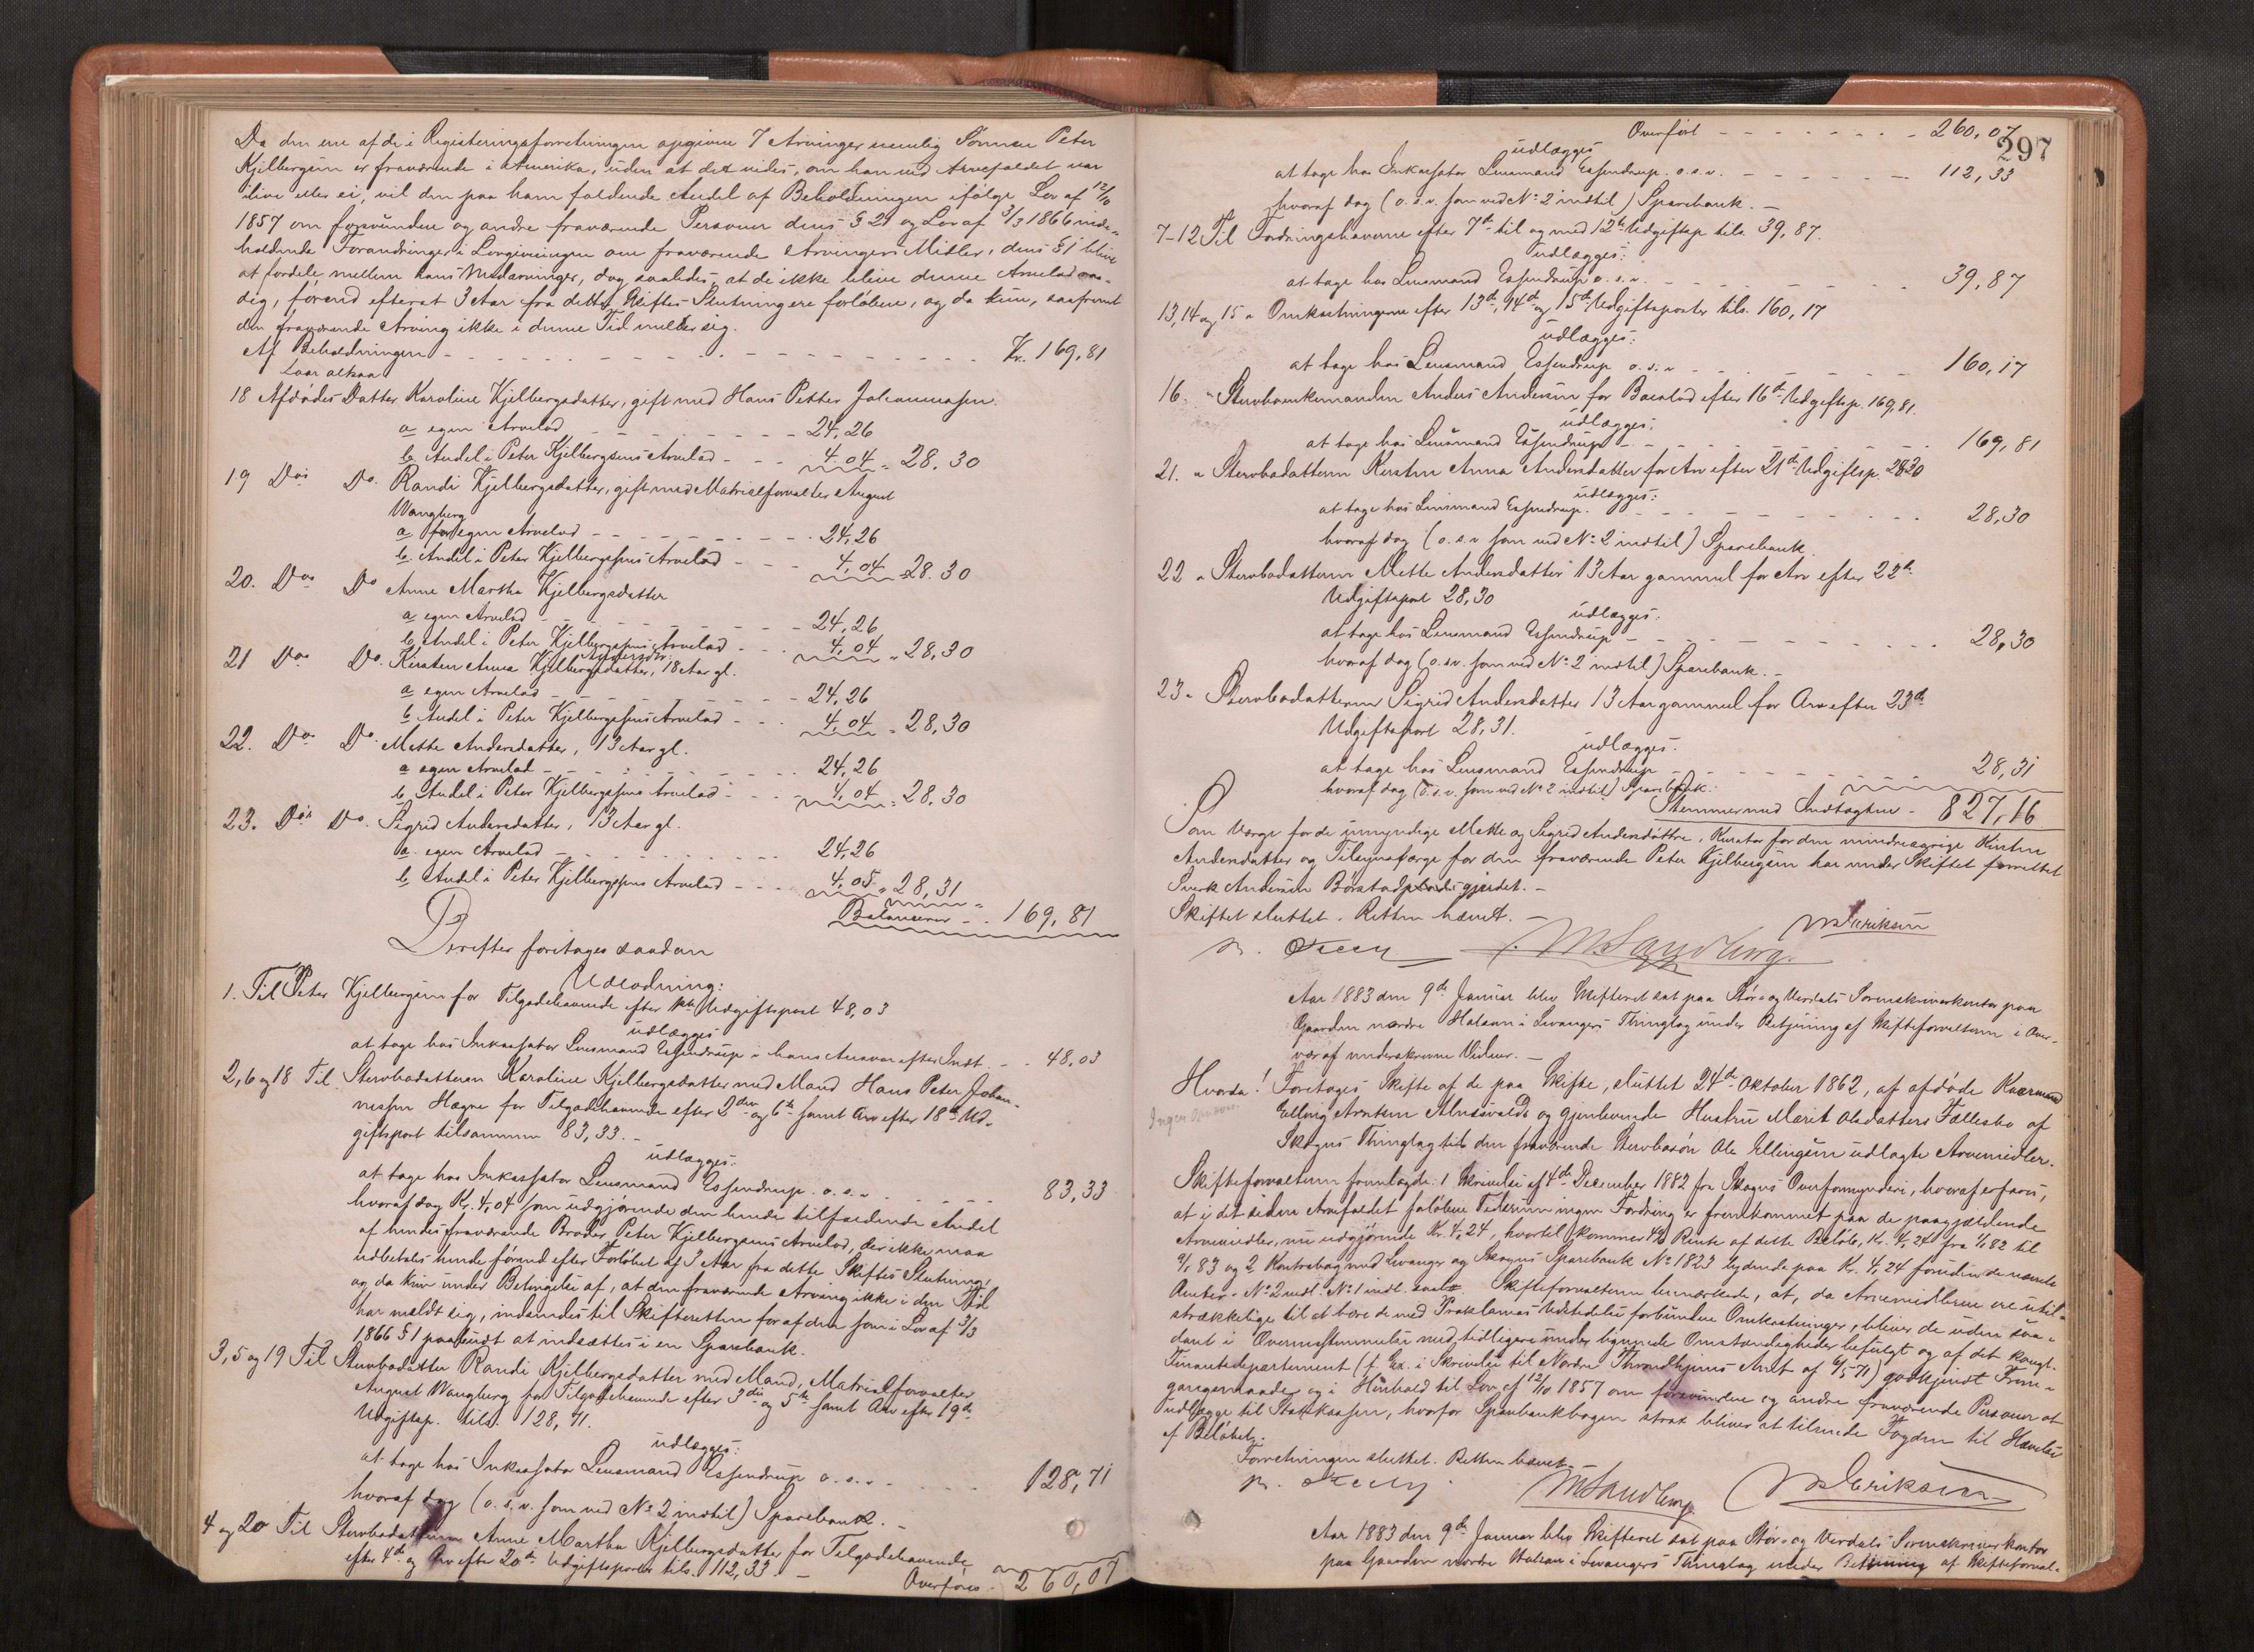 Da den ene af de i Registeringsforretningen opgivne 7 Arvinger nemlig Sønnen Peter
Kjelbergsen er fraværende i Amerika, uden at det vides, om han ved Arvefaldet var
ilive eller ei, vil den paa ham faldende Andel af Beholdningen ifølge Lov af 12/10
1857 om forsvundne og andre fraværende Personer dens § 21 og Lov af 3/3 1866 inde-
holdende Forandringer i Lovgivningen om fraværende Arvingers Midler, dens § 1 blive
at fordele mellem hans Medarvinger, dog saaledes, at de ikke bliver denne Arvelod raa-
dig, førend efterat 3 Aar fra dette Skiftes Slutning ere forløbne, og da kun, saafremt
den fraværende Arving ikke i denne Tid melder sig.
Af Beholdningen - - - Kr. 169,81
Laar altsaa
18 Afdødes Datter Karoline Kjelbergsdatter, gift med Hans Petter Johannessen.
a egen Arvelod - - - 24,26
b. Andel i Peter Kjelbergsens Arvelod - - - 4.04 " 28.30
19 Dos Do. Randi Kjelbergsdatter, gift med Matrialforvalter August
Wangberg
a for egen Arvelod - - - 24,26
b. Andel i Peter Kjelbergsens Arvelod - - - 4,04 " 28.30
20. Dos Do Anne Martha Kjelbergsdatter
a egen Arvelod - - - 24,26
b. Andel i Peter Kjelbergsens Arvelod - - - 4,04 " 28,30
Andersdtr.
21 Dos Do. Kirsten Anna Kjelbergsdatter, 18 Aar gl.
a egen Arvelod - - - 24,26
b Andel i Peter Kjelbergsens Arvelod - - - 4,04 " 28,30
22. Dos Do. Mette Andersdatter, 13 Aar gl.
a egen Arvelod - - - 24,26
b. Andel i Peter Kjelbergsens Arvelod - - - 4,04 " 28,30
23. Dos Do. Sigrid Andersdatter, 13 Aar gl.
a. egen Arvelod - - - 24,26
b. Andel i Peter Kjelbergsens Arvelod - - - 4,05 " 28,31
Balancerer - - 169,81
Derefter foretages saadan
Udlodning:
1. Til Peter Kjelbergsen for Tilgodehavende efter 1ste Udgiftspost 48,03
udlægges
at tage hos Inkassator Lensmand Essendrup i hans Ansvar efter Indt. - - 48,03
2, 6 og 18 Til Stervbodatteren Karoline Kjelbergsdatter med Mand Hans Peter Johan-
nessen Hægne for Tilgodehavende efter 2den og 6te samt Arv efter 18de Ud-
giftspost tilsammen 83,33. -
udlægges:
at tage hos Inkassator Lensmand Essendrup o.s.v. - - - 83,33
hvoraf dog Kr. 4,04 som udgjørende den hende tilfaldende Andel
af hendes fraværende Broder Peter Kjelbergsens Arvelod, der ikke maa
udbetales hende førend efter Forløbet af 3 Aar fra dette Skiftes Slutning,
og da kun under Betingelse af, at den fraværende Arving ikke i den Tid
har meldt sig, indsendes til Skifteretten for af den som i Lov af 3/3
1866 § 1 paabudt at indsættes i en Sparebank.
3, 5 og 19 Til Stervbodatter Randi Kjelbergsdatter med Mand, Matrialforvalter
August Wangberg for Tilgodehavende efter 3die og 5te samt Arv efter 19de
Udgiftsp. tils. 128,71.
udlægges:
at tage hos Inkassator Lensmand Essendrup o.s.v. - - - 128,71
hvoraf dog (o.s.v. som ved No 2 indtil) Sparebank. -
4 og 20 Til Stervbodatteren Anne Martha Kjelbergsdatter for Tilgodehavende
efter 4de og Arv efter 20de Udgiftsposter tils. 112,33. -
Overføres - 260,07
297
Overført - - - 260,07
udlægges
at tage hos Inkassator Lensmand Essendrup. o.s.v. - - - 112,33
hvoraf dog (o.s.v. som ved No 2 indtil) Sparebank. -
7-12 Til Fordringshaverne efter 7de til og med 12te Udgiftsp. tils. 39,87.
udlægges:
at tage hos Lensmand Essendrup o.s.v. - - - 39,87
13, 14 og 15 " Omkostningerne efter 13de, 14de og 15de Udgiftsposter tils. 160,17
udlægges:
at tage hos Lensmand Essendrup o.s.v - - - 160,17
16. " Stervboenkemanden Anders Andersen for Boeslod efter 16de Udgiftsp. 169,81.
udlægges:
at tage hos Lensmand Essendrup - - - 169,81
21. " Stervbodatteren Kirsten Anna Andersdatter for Arv efter 21de Udgiftsp. 28,30
udlægges:
at tage hos Lensmand Essendrup. - - - 28,30
hvoraf dog (o.s.v som ved No 2 indtil) Sparebank.
22 " Stervbodatteren Mette Andersdatter 13 Aar gammel for Arv efter 22de
Udgiftspost 28,30
udlægges:
at tage hos Lensmand Essendrup - - - 28,30
hvoraf dog (o.s.v. som ved No 2 indtil) Sparebank. -
23 " Stervbodatteren Sigrid Andersdatter 13 Aar gammel for Arv efter 23de
Udgiftspost 28,31.
udlægges:
at tage hos Lensmand Essendrup - - - 28,31
hvoraf dog (o.s.v. som ved No 2 indtil) Sparebank.
Stemmer med Indtægten - 827,16
Som Værge for de umyndige Mette og Sigrid Andersdøttre, Kurator for den mindreaarige Kirsten
Andersdatter og Tilsynsværge for den fraværende Peter Kjelbergsen har under Skiftet forrettet
Sverk Andersen Børstadpladsgjerdet. -
Skiftet sluttet. Retten hævet. -
M Sandberg. Eriksen
Aar 1883 den 9de Januar blev Skifteret sat paa Stør- og Verdals Sorenskriverkontor paa
Gaarden nordre Halsan i Levangers Thinglag under Betjening af Skifteforvalteren i Over-
vær af underskrevne Vidner. -
Hvorda! Foretoges Skifte af de paa Skifte, sluttet 24de Oktober 1862, af afdøde Kaarmand
Elling Arntsen Alnesvalds og gjenlevende Hustru Marit Olsdatters Fællesbo af
Skogns Thinglag til den fraværende Stervbosøn Ole Ellingsen udlagte Arvemidler.
Skifteforvalteren fremlagde: 1 Skrivelse af 4de December 1882 fra Skogns Overformynderi, hvoraf erfares,
at i det siden Arvefaldet forløbne Tidsrum ingen Fordring er fremkommet paa de paagjældende
Arvemidler, nu udgjørende Kr. 4,24, hvortil kommer 4% Rente af dette Beløb, Kr. 4,24 fra 1/1 82 til
9/1 83 og 2 Kontrabog med Levanger og Skogns Sparebank No 1823 lydende paa Kr. 4,24 foruden de nævnte
Renter. No 2 indl. No 1 indt. saal. Skifteforvalteren bemærkede, at, da Arvemidlerne ere util-
strækkelige til at bære de med Proklamas Udstedelse forbundne Omkostninger, bliver de uden saa-
dant i Overensstemmelse med tidligere under lignende Omstændigheder befulgt og af det kongl.
Finantsdepartement (f. Ex. i Skrivelse til Nordre Throndhjems Amt af 6/5 71) godkjendt Frem-
gangsmaade og i Henhold til Lov af 12/10 1857 om forsvundne og andre fraværende Personer at
udlægge til Statskassen, hvorfor Sparebankbogen strax bliver at tilsende Fogden til Hævelse
af Beløbet.
Forretningen sluttet. Retten hævet. -
M Sandberg. Eriksen
Aar 1883 den 9de Januar blev Skifteret sat paa Stør- og Verdals Sorenskriverkontor
paa Gaarden nordre Halsan i Levangers Thinglag under Betjening af Skifteforval-